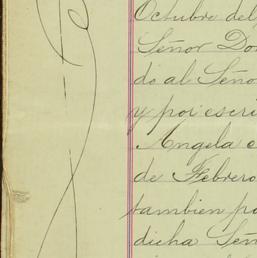 Octubre del
Señor Don
do al Seño
y por escri
Angela e
de Febrero
tambien po
dicha Señ